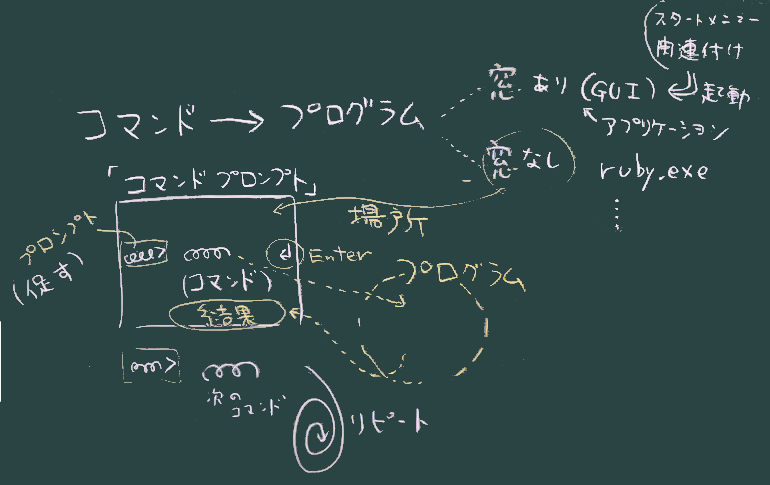 スタートメニュー
関連付け
窓 あり (GUI) 起動
アプリケーション
コマンド → プログラム
窓 なし
ruby.exe
「コマンドプロンプト」
場所
プロンプト
(促す)
Enter
(コマンド)
プログラム
結果
次の
コマンド
リピート